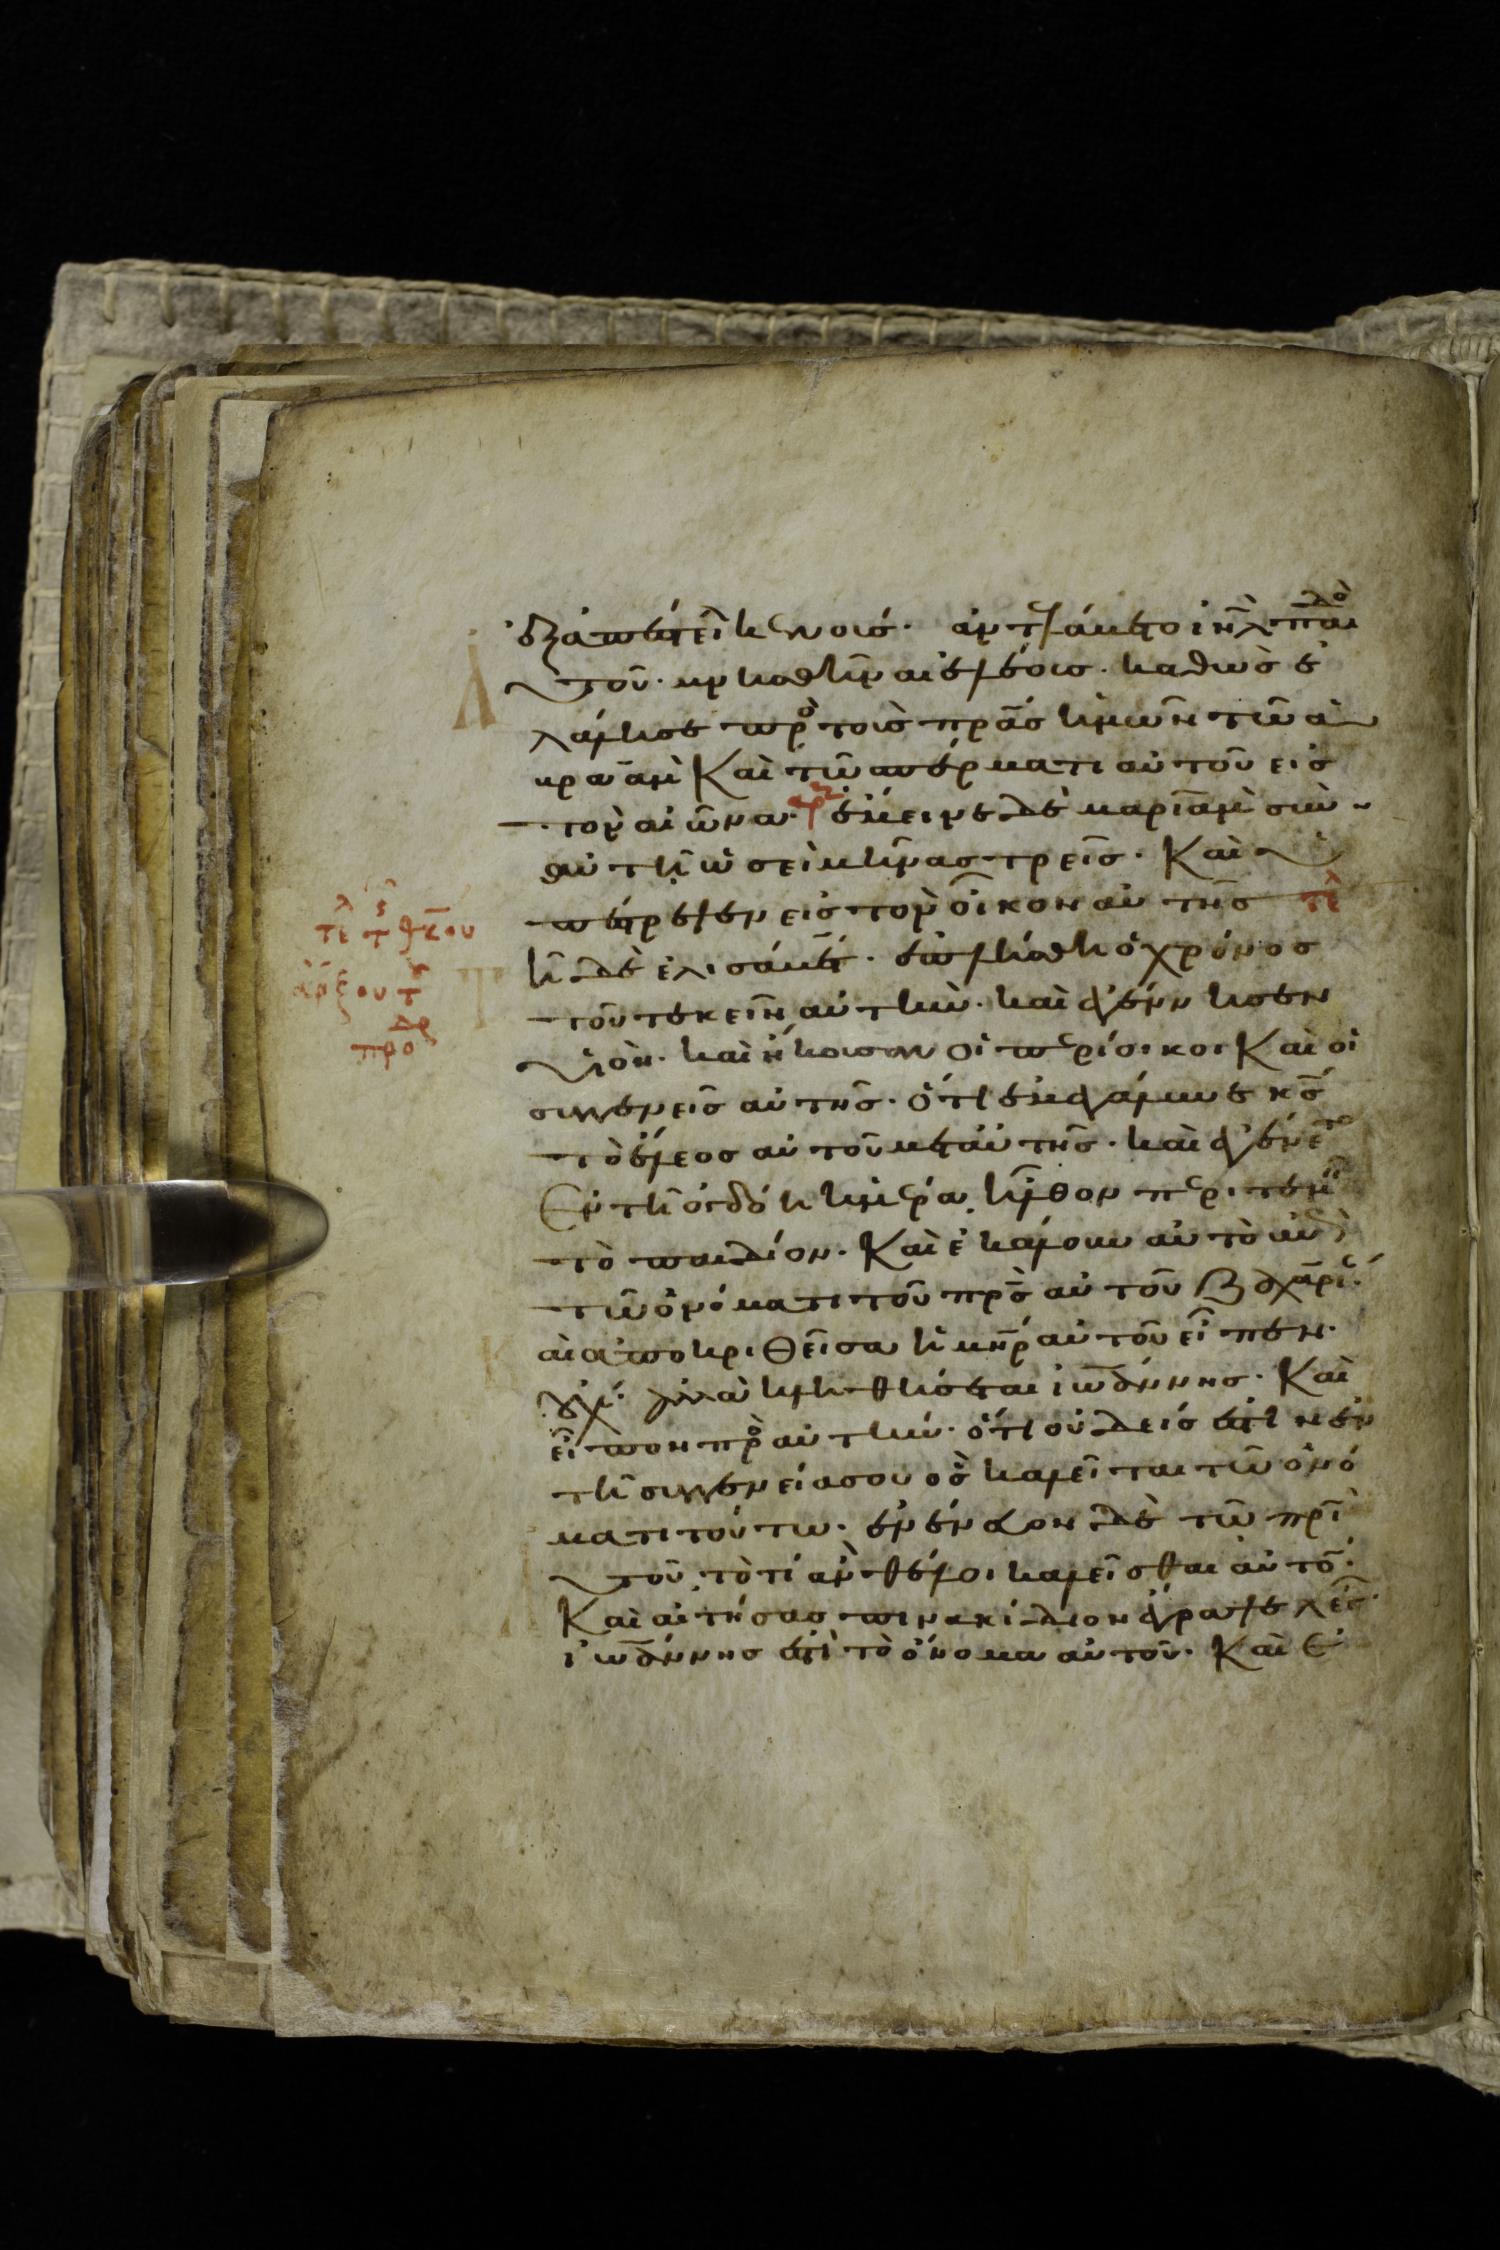 ἐξαπέστειλε κενούς. ἀντελάβετο ἰη̅λ παιδὸ(ς)
αὐτοῦ. μνησθῆναι ἐλέους. καθὼς ἐ
λάλησε πρὸ(ς) τοὺς πρ̅ας ἡμῶν τῶ ἀ
βραὰμ Καὶ τῶ σπέρματι αὐτοῦ εἰς
τὸν αἰῶνα. ἔμεινε δὲ μαριὰμ σὺν
αὐτῆ ὡσεὶ μῆνας τρεῖς. Καὶ ὑ
πέστρεψεν εἰς τὸν οἶκον αὐτῆς τελ
τῆ δὲ ἐλισάβετ. ἐπλήσθη ὁ χρόνος
τοῦ τεκεῖν αὐτὴν. καὶ ἐγέννησεν
υἱόν. καὶ ἤκουσαν οἱ περίοικοι Καὶ οἱ
συγγενεῖς αὐτῆς. ὅτι ἐμεγάλυνε κ̅ς
τὸ ἔλεος αὐτοῦ μετ αὐτῆς. καὶ ἐγένετο
Ἐν τῆ ὀγδόη ἡμέρα, ἦλθον περιτεμεῖν
τὸ παιδίον. Καὶ ἐκάλουν αὐτὸ ἐπὶ
τῶ ὀνόματι τοῦ πρ̅ς αὐτοῦ ζαχαρί(αν).
Καὶ ἀποκριθεῖσα ἡ μη̅ρ αὐτοῦ εἶπεν.
οὐχί. ἀλλὰ κληθήσεται ἰωάννης. Καὶ
εἶπον πρὸ(ς) αὐτὴν. ὅτι οὐδείς ἐστιν ἐν
τῆ συγγενεία σου ὃς καλεῖται τῶ ὀνό
ματι τούτω. ἐνένευον δὲ τῶ πρ̅ι
αὐτοῦ. τὸ τί ἂν θέλοι καλεῖσθαι αὐτό(ν).
Καὶ αἰτήσας πινακίδιον ἔγραψε λέγ(ων).
ἰωάννης ἐστὶ τὸ ὄνομα αὐτοῦ. Καὶ ἐ